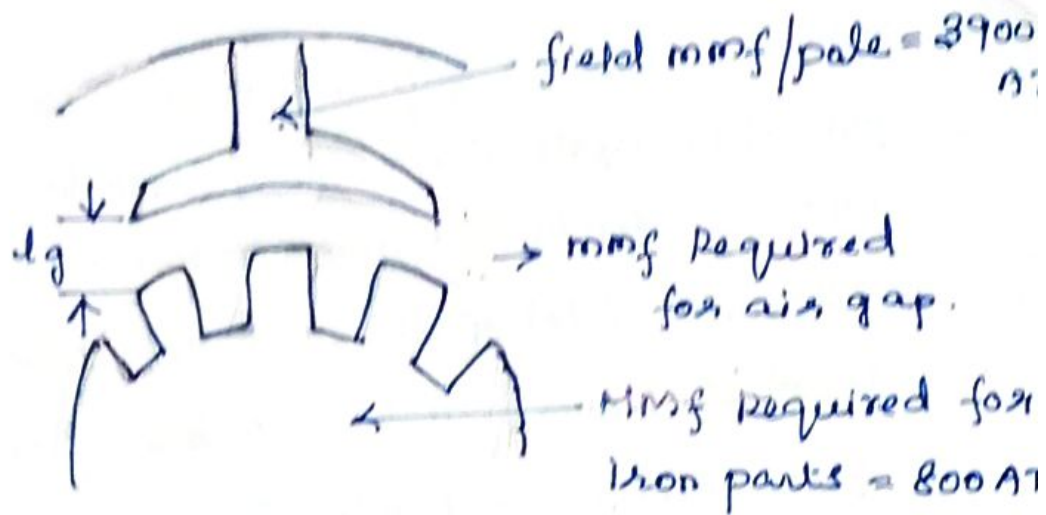 field mmf/pole = 3900
AT
lg
→ mmf Required
for air gap.
MMf Required for
Iron parts = 800 AT